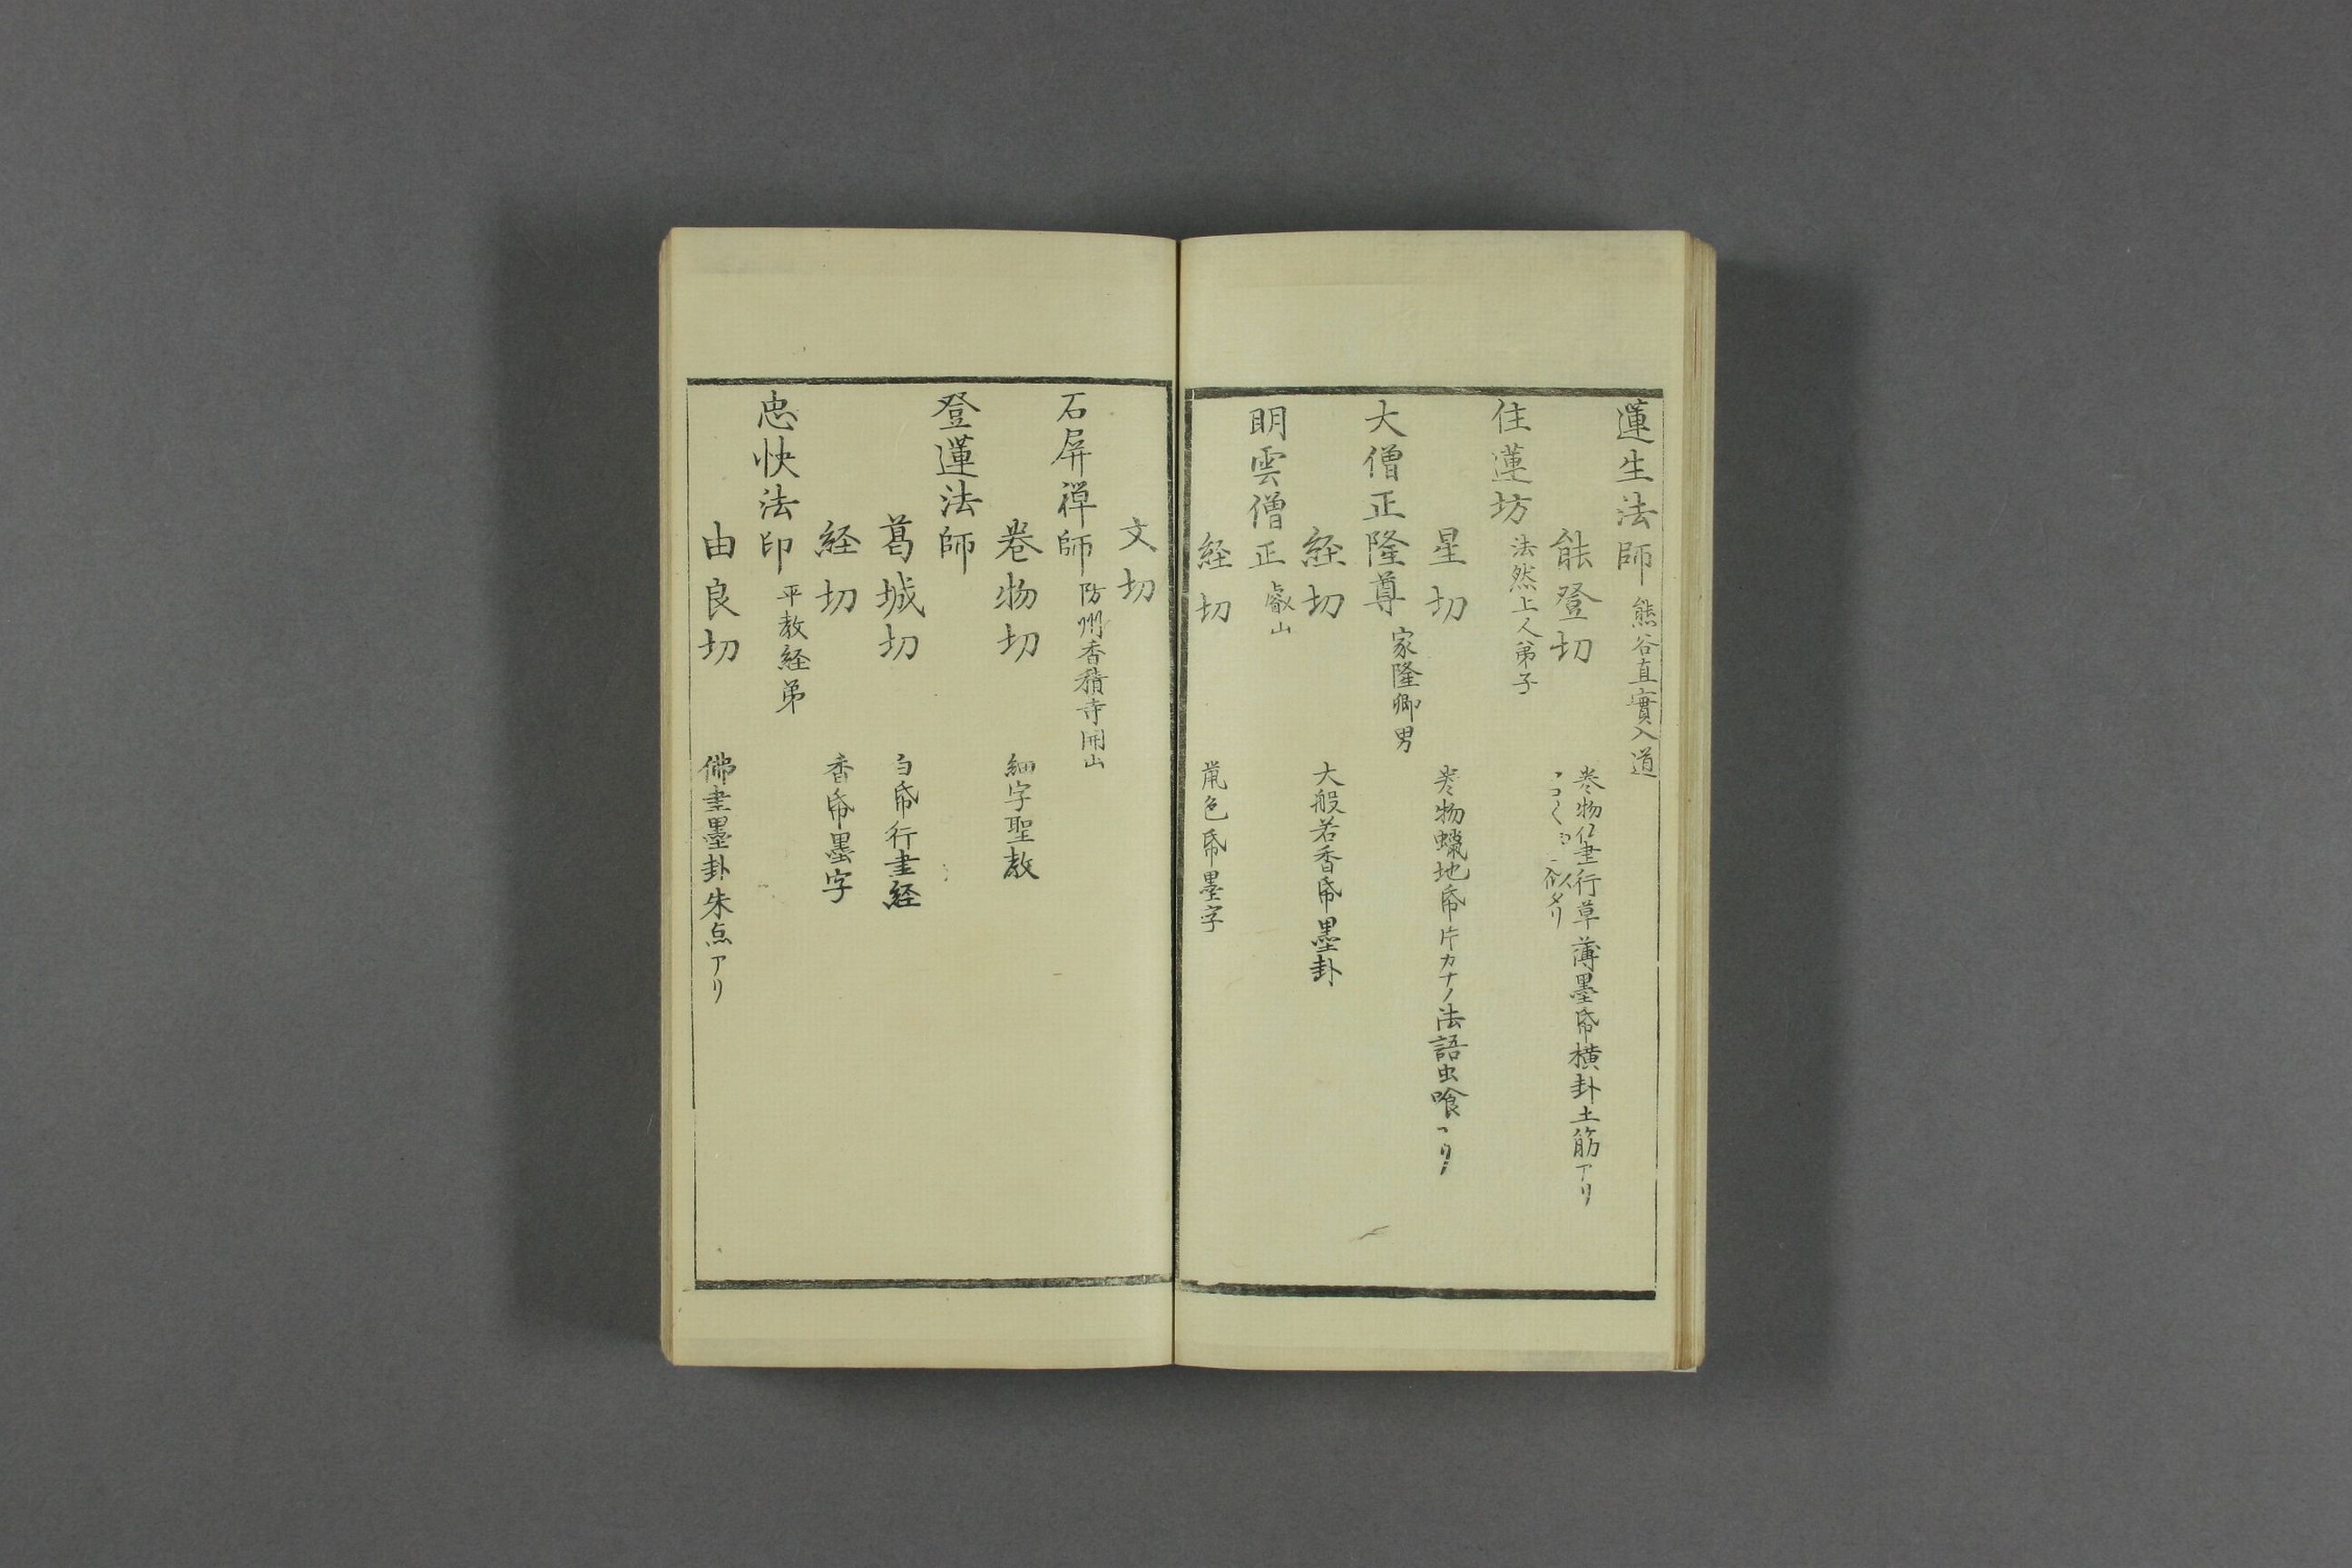 蓮生法師 熊谷直實入道
能登切 巻物仏書行草薄墨帋横卦土筋アリ
似タリ
住蓮坊 法然上人弟子
星切 巻物蠟地帋片カナノ法語虫喰アリ
大僧正隆尊 家隆卿男
経切 大般若香帋墨卦
明雲僧正 叡山
経切 鼠色帋墨字
文切
石屏禅師 防州香積寺開山
巻物切 細字聖教
登蓮法師
葛城切 白帋行書経
経切 香帋墨字
忠快法印 平教経弟
由良切 佛書墨卦朱点アリ